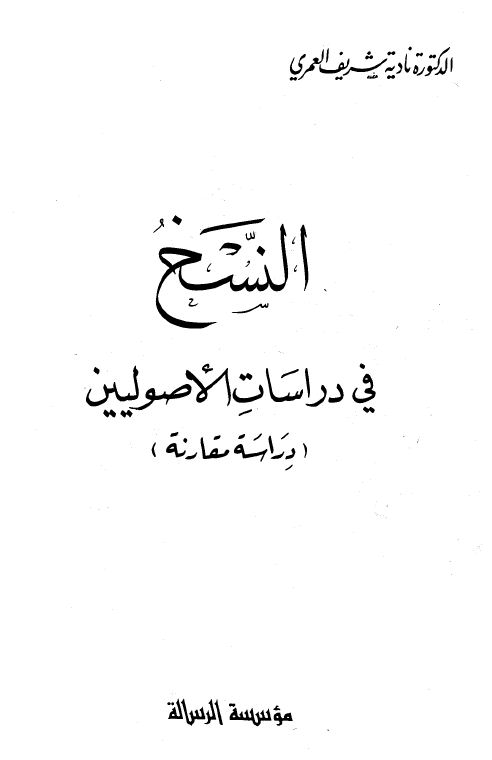 الدكتورة نادية شريف العمري
النَّسْخُ
في دراسَاتِ الأصوليين
(دِرَاسَة مقارنة)
مؤسسة الرسالة